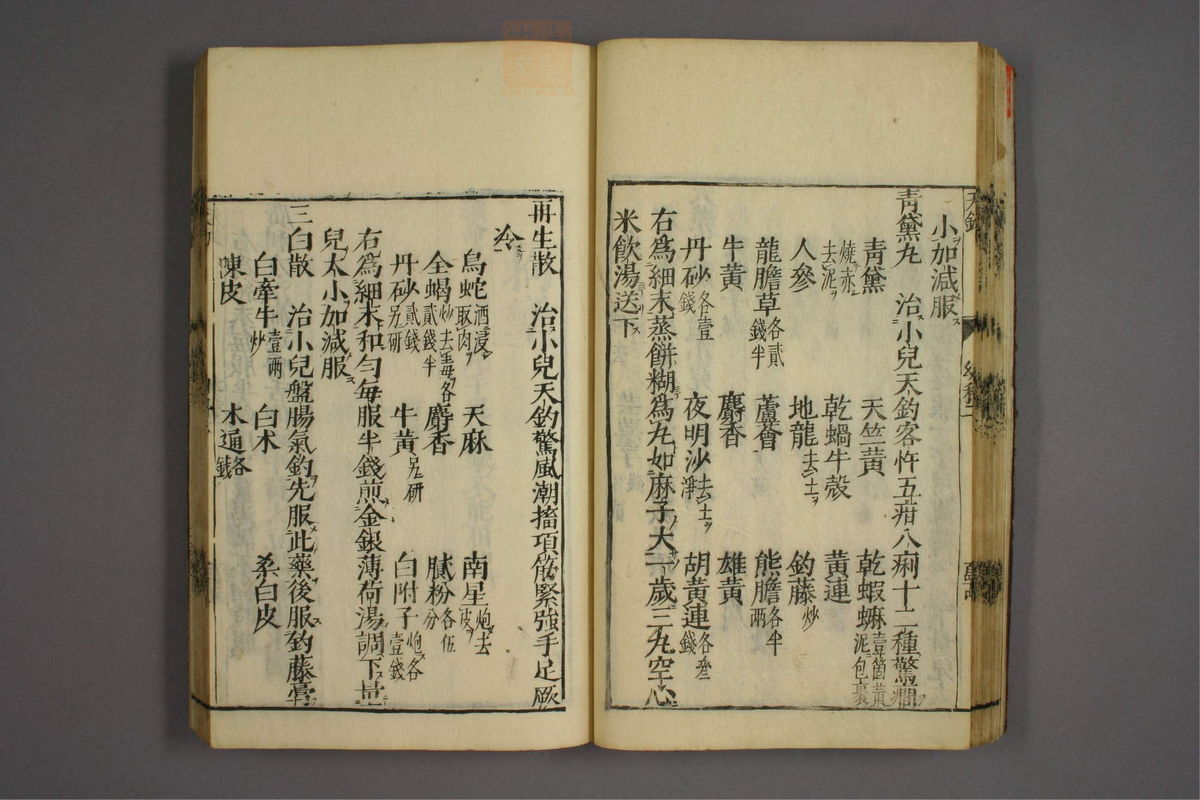 小加減服
青黛丸 治小兒天釣客忤五疳八痢十二種驚癇
青黛 天竺黃 乾蝦蟆壹箇黃泥包裹
燒赤去泥 乾蝸牛殼 黃連
人參 地龍去土 釣藤炒
龍膽草各貳錢半 蘆薈 熊膽各半兩
牛黃 麝香 雄黃
丹砂各壹錢 夜明沙去土淨 胡黃連各叄錢
右為細末蒸餅糊為丸如麻子大一歲三丸空心
米飲湯送下
再生散 治小兒天釣驚風潮搐項筋緊強手足厥
冷
烏蛇酒浸取肉 天麻 南星炮去皮
全蝎炒去毒各貳錢半 麝香 膩粉各伍分
丹砂貳錢另研 牛黃另研 白附子炮各壹錢
右為細末和勻每服半錢煎金銀薄荷湯調下量
兒太小加減服
三白散 治小兒盤腸氣釣先服此藥後服釣藤膏
白牽牛壹兩炒 白朮 桑白皮
陳皮 木通各錢